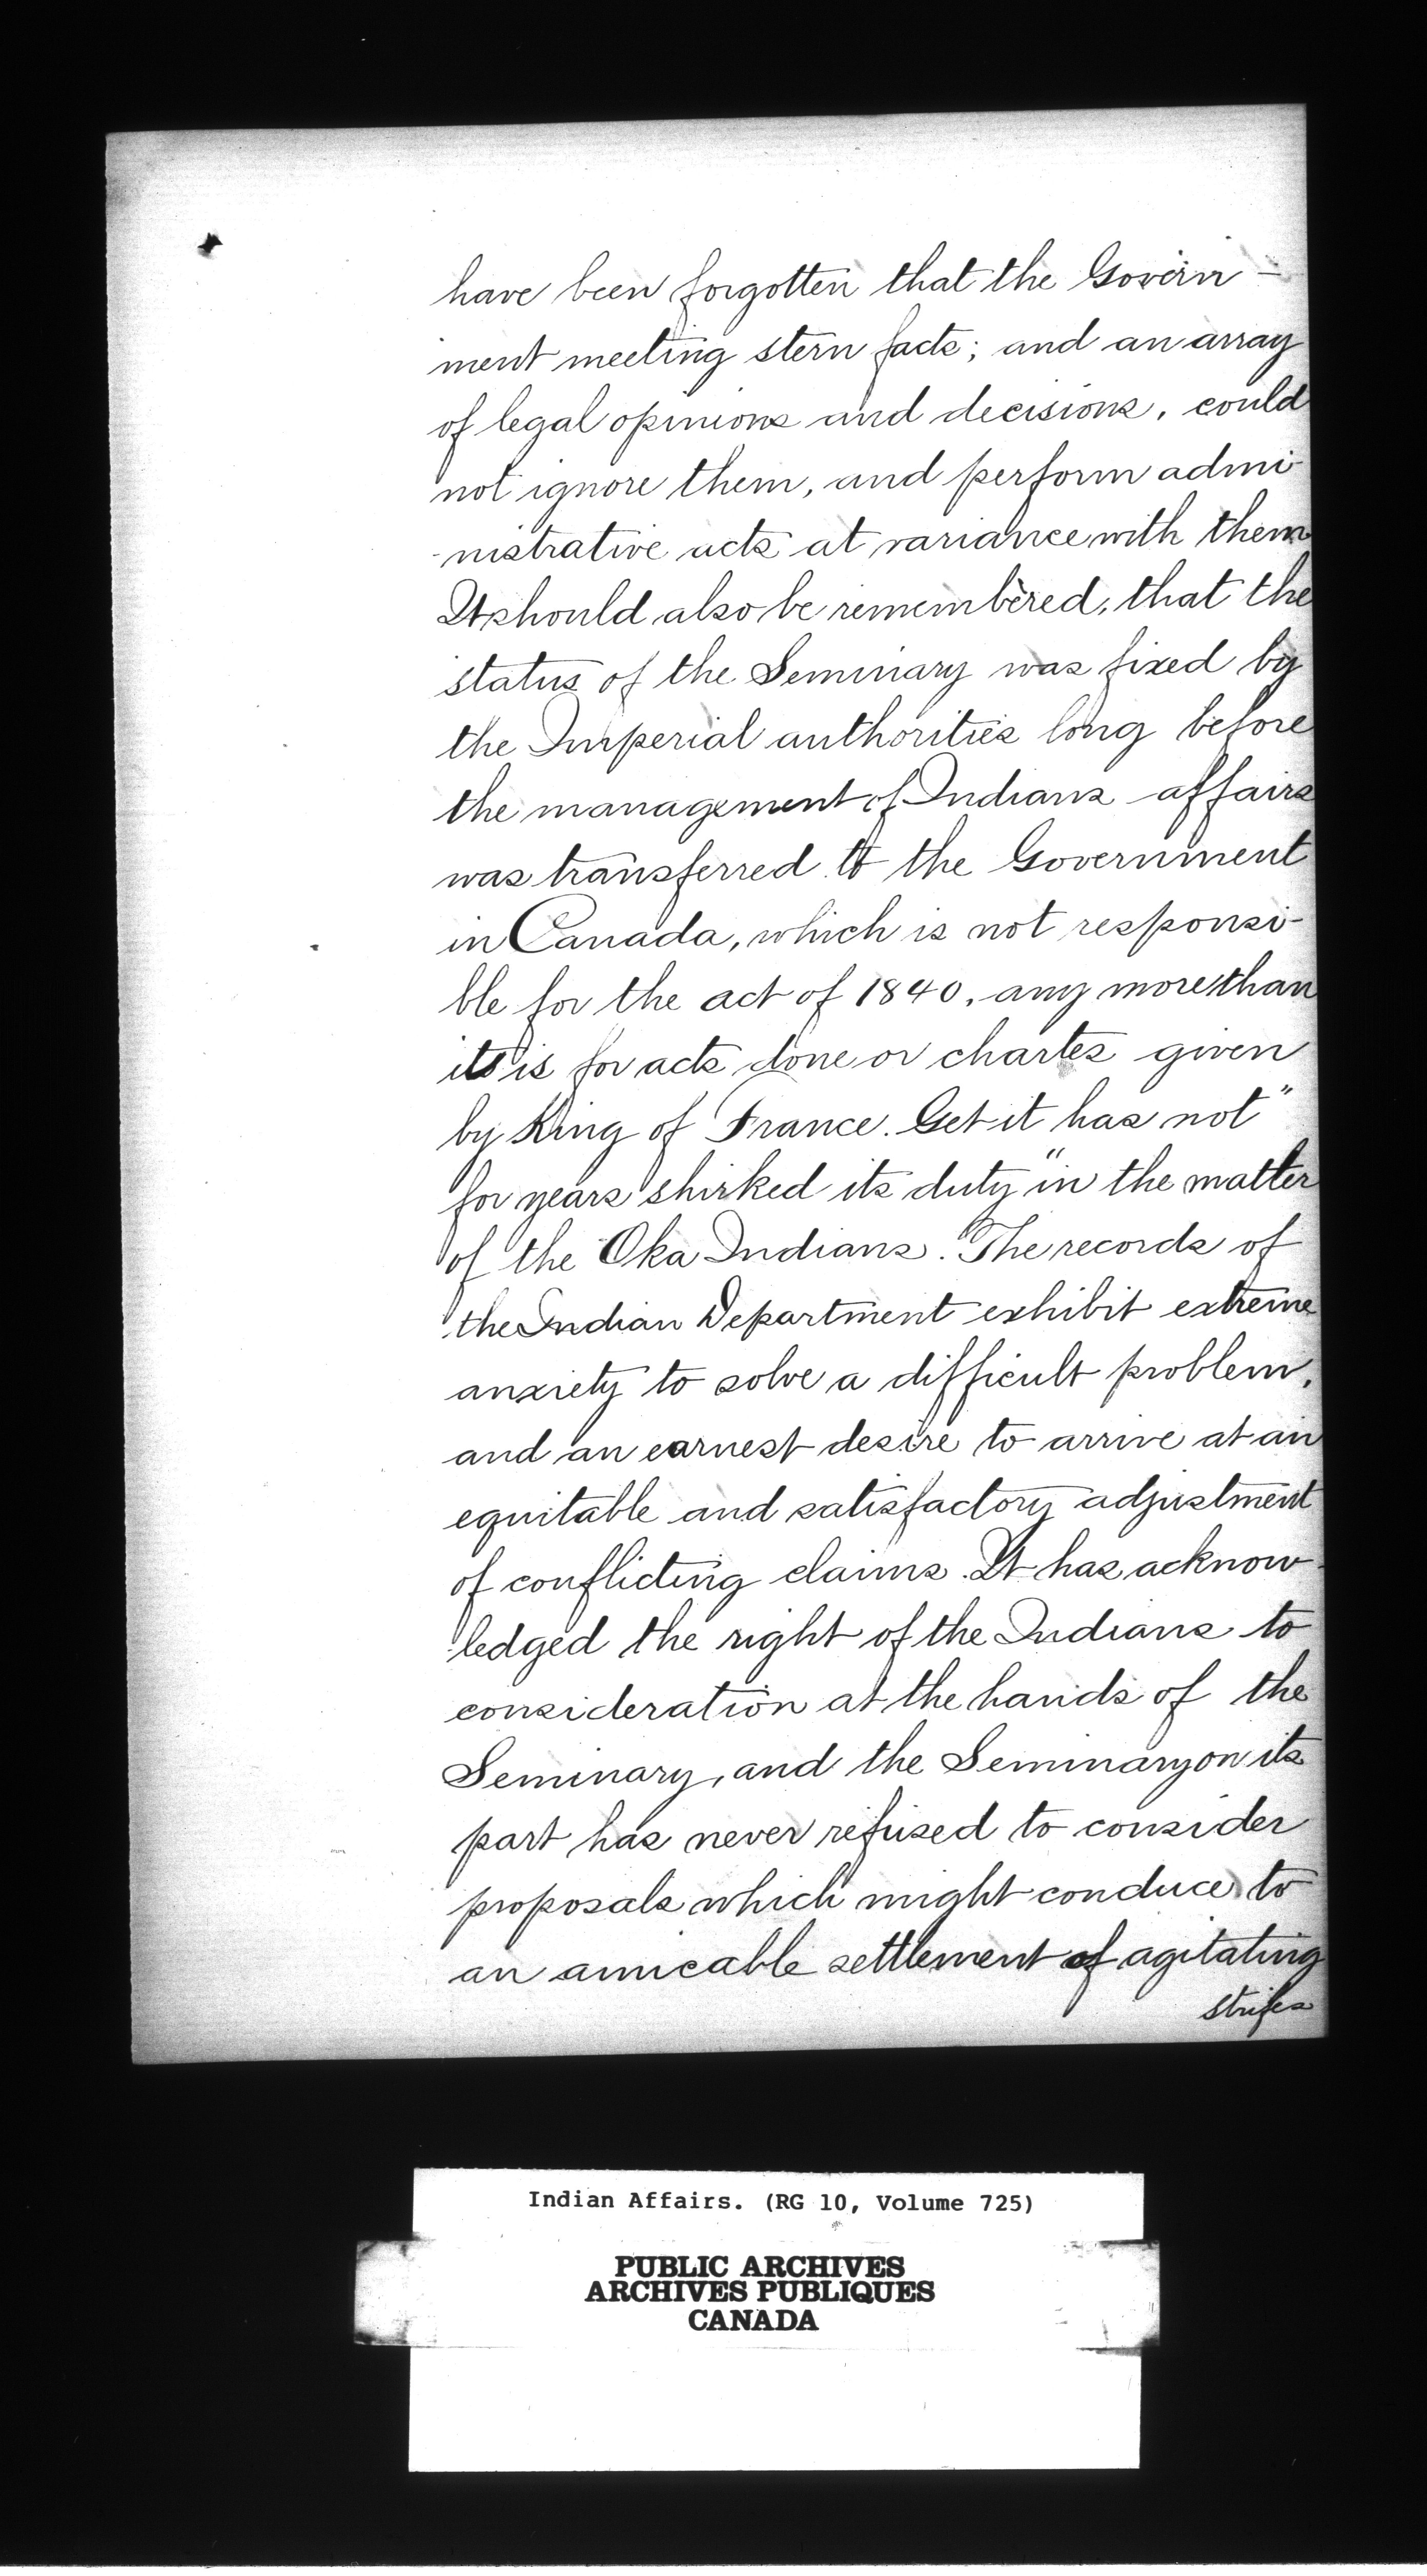 have been forgotten that the Govern-
ment meeting stern facts; and an array
of legal opinions and decisions, could
not ignore them, and perform admi-
-nistrative acts at variance with them
It should also be remembered, that the
status of the Seminary was fixed by
the Imperial authorities long before
the management of Indians affairs
was transferred to the Government
in Canada, which is not responsi-
ble for the act of 1840, any more than
its is for acts done or chartes given
by King of France. Yet it has not "
for years shirked its duty" in the matter
of the Oka Indians. The records of
the Indian Department exhibit extreme
anxiety to solve a difficult problem,
and an earnest desire to arrive at an
equitable and satisfactory adjustment
of conflicting claims. It has acknow-
ledged the right of the Indians to
consideration at the hands of the
Seminary, and the Seminary on its
part has never refused to consider
proposals which might conduce to
an amicable settlement of agitating
strifes
Indian Affairs. (RG 10, Volume 725)
PUBLIC ARCHIVES
ARCHIVES PUBLIQUES
CANADA